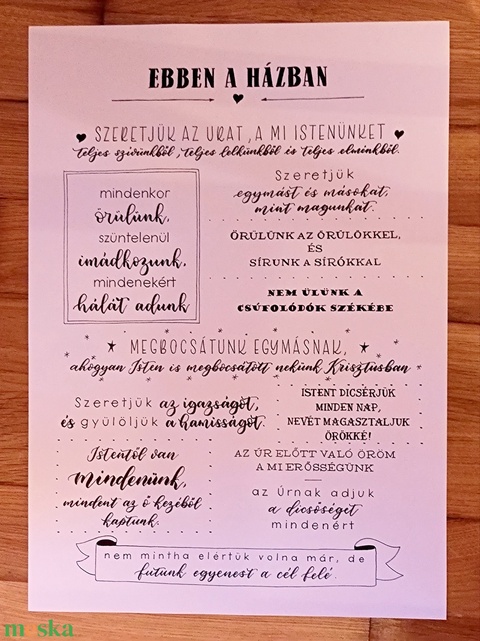 EBBEN A HÁZBAN
SZERETJÜK AZ URAT, A MI ISTENÜNKET
teljes szívünkből, teljes lelkünkből és teljes elménkből.
mindenkor
örülünk,
szüntelenül
imádkozunk,
mindenekért
hálát adunk
Szeretjük
egymást és másokat,
mint magunkat.
ÖRÜLÜNK AZ ÖRÜLŐKKEL,
ÉS
SÍRUNK A SÍRÓKKAL
NEM ÜLÜNK A
CSÚFOLÓDÓK SZÉKÉBE
MEGBOCSÁTUNK EGYMÁSNAK,
ahogyan Isten is megbocsátott nekünk Krisztusban
Szeretjük az igazságot,
és gyűlöljük a hamisságot.
ISTENT DICSÉRJÜK
MINDEN NAP,
NEVÉT MAGASZTALJUK
ÖRÖKKÉ!
Istentől van
mindenünk,
mindent az ő kezéből
kaptunk.
AZ ÚR ELŐTT VALÓ ÖRÖM
A MI ERŐSSÉGÜNK
az Úrnak adjuk
a dicsőséget
mindenért
nem mintha elértük volna már, de
futunk egyenest a cél felé.
m ska